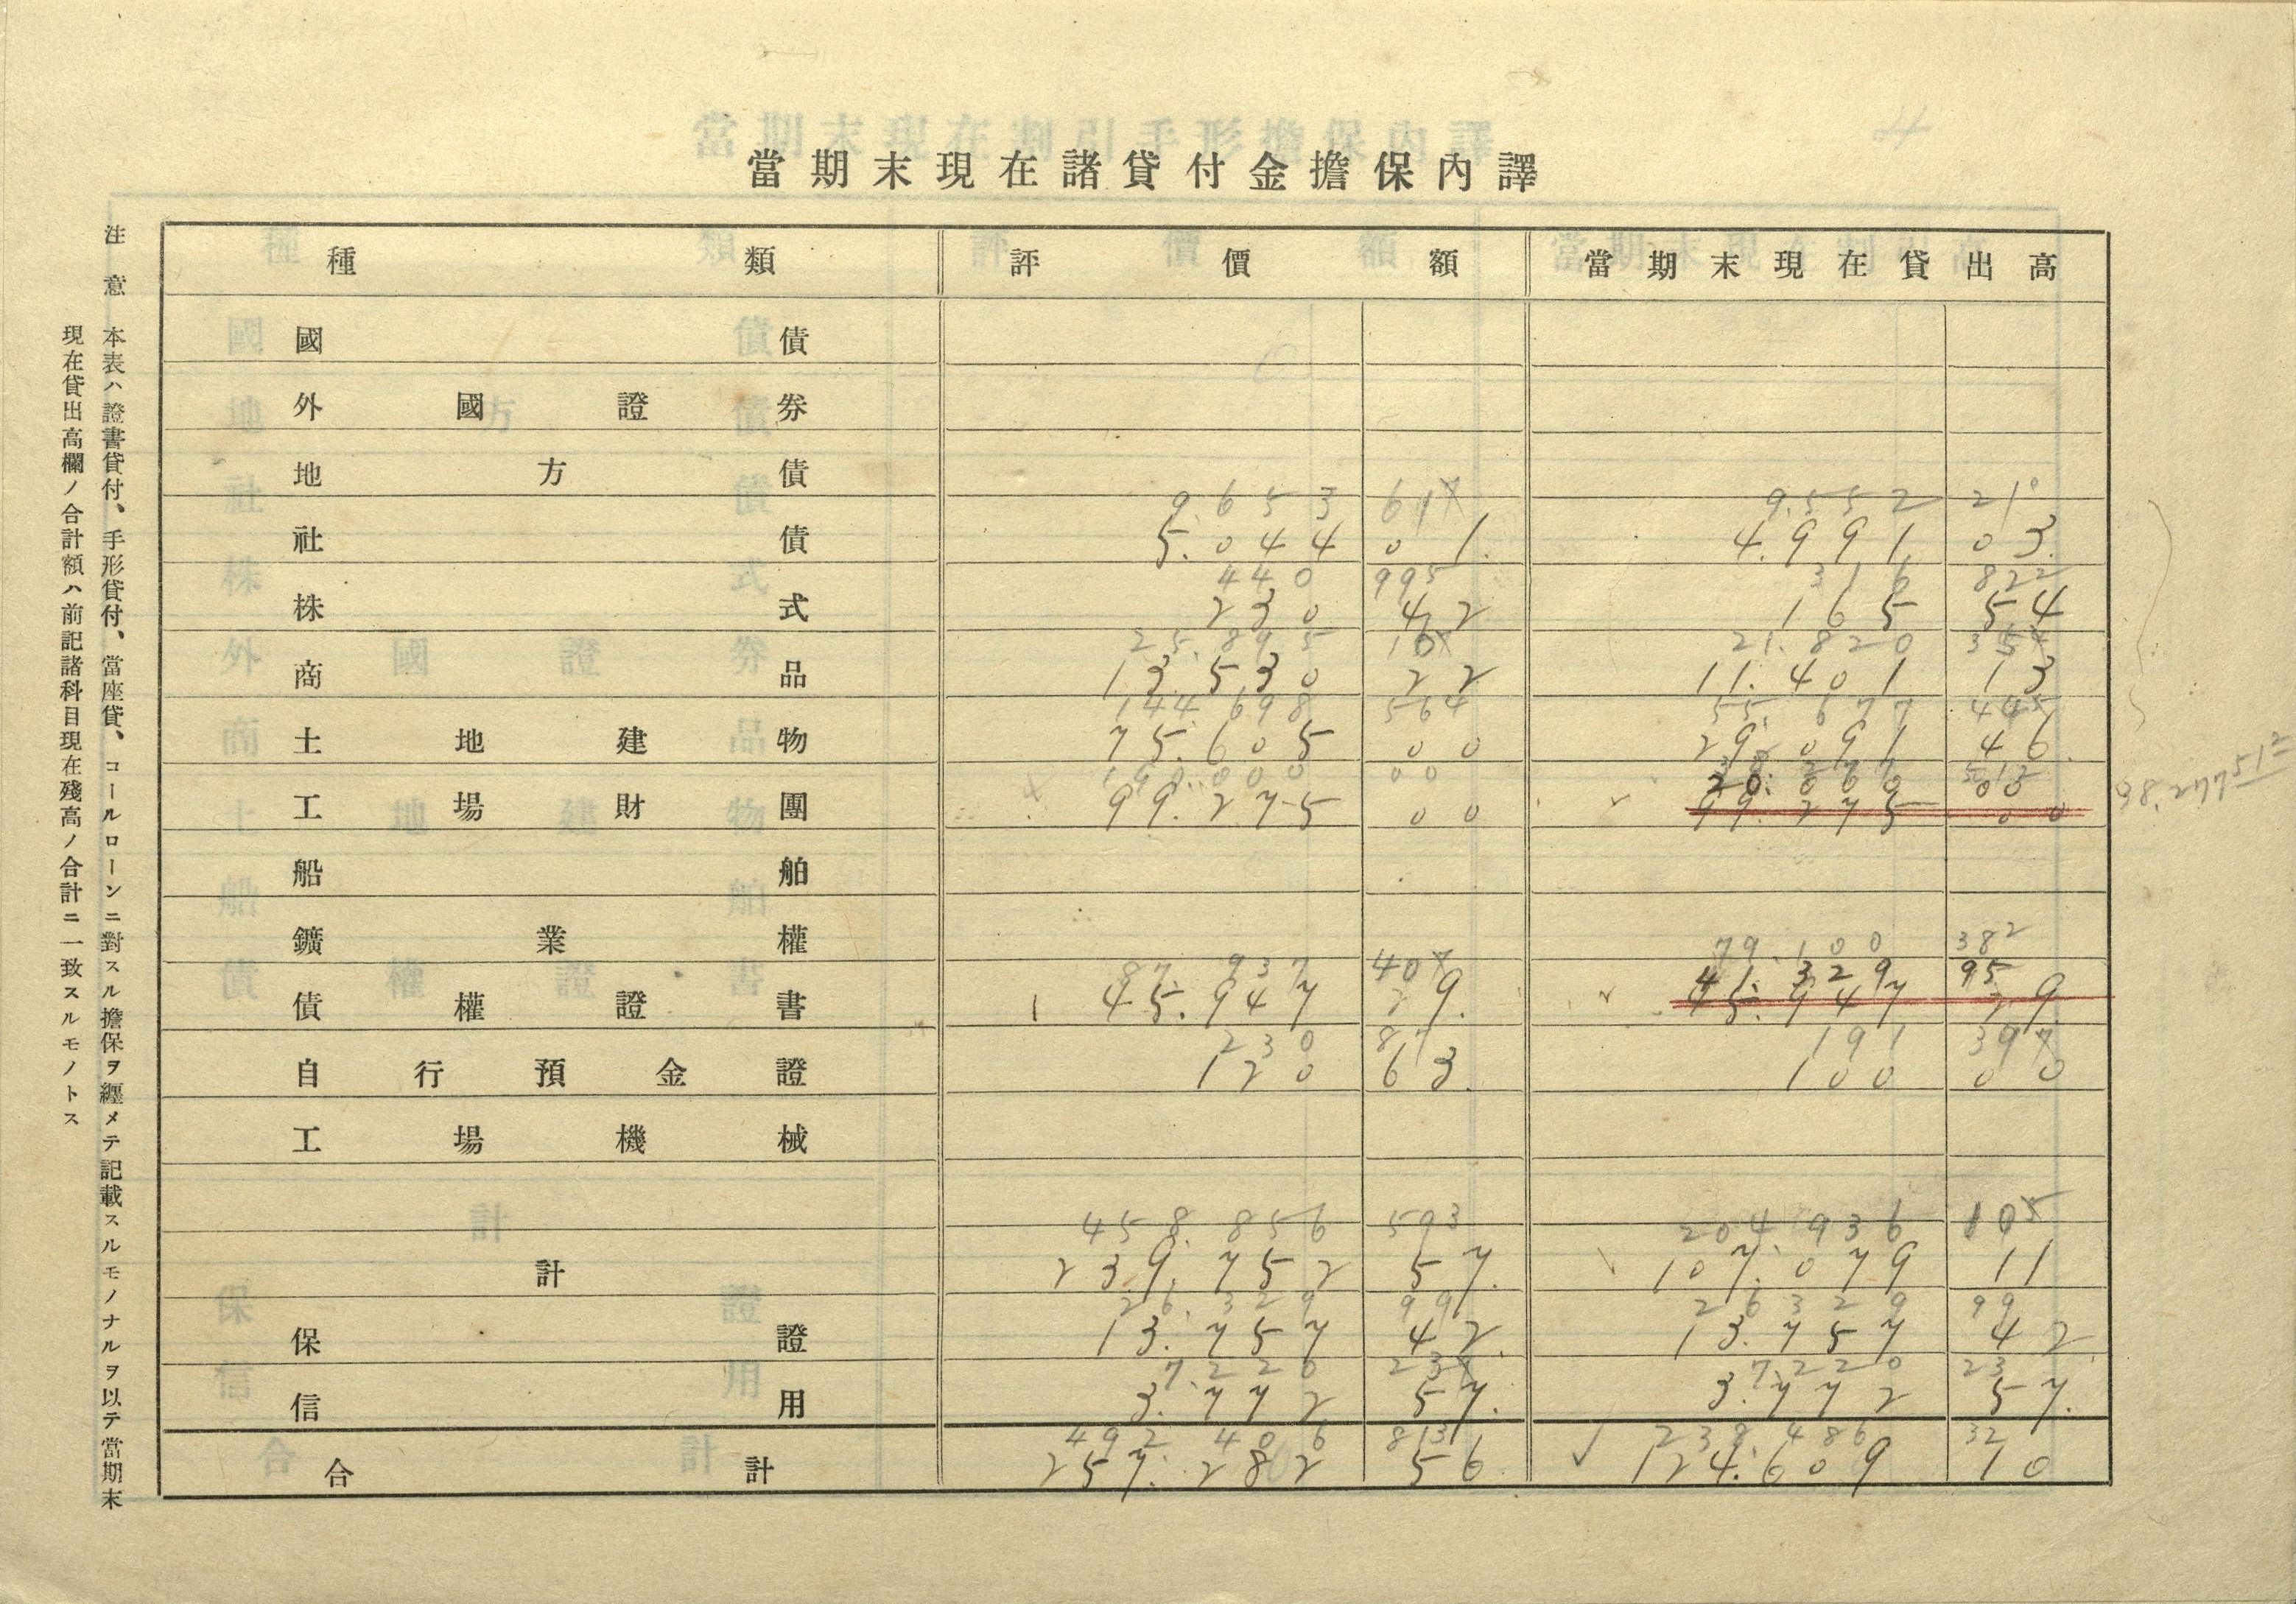 當期末現在諸貸付金擔保內譯
種類 評價額 當期末現在貸出高
國債
外國證券
地方債
9.653 61 9.552 21
社債 5.044 01. 4.991 03.
440 995 316 822
株式 230 42 165 54
25.895 21.820
商品 13.530 22 11.401 13
144.698 564 55.677 445
土地建物 75.605 00 29.091 46.
198.000 00
工場財團 99.275 00 20.000 00
99.275 00
38.277 512
船舶
鑛業權
87.937 40 79.100 382
債權證書 45.947 79. 41.329 95
45.947 79
230 87 191 397
自行預金證 120 63. 100 00
工場機械
458.856 593 204.936 105
計 239.752 57. 107.079 11
26.329 99 26329 99
保證 13.757 42. 13.757 42.
7.220 23 7.220 23
信用 3.772 57. 3.772 57.
492.406 813 238.486 32
合計 257.282 56 124.609 10
注意 本表ハ證書貸付、手形貸付、當座貸、コールローンニ對スル擔保ヲ纒メテ記載スルモノナルヲ以テ當期末
現在貸出高欄ノ合計額ハ前記諸科目現在殘高ノ合計ニ一致スルモノトス